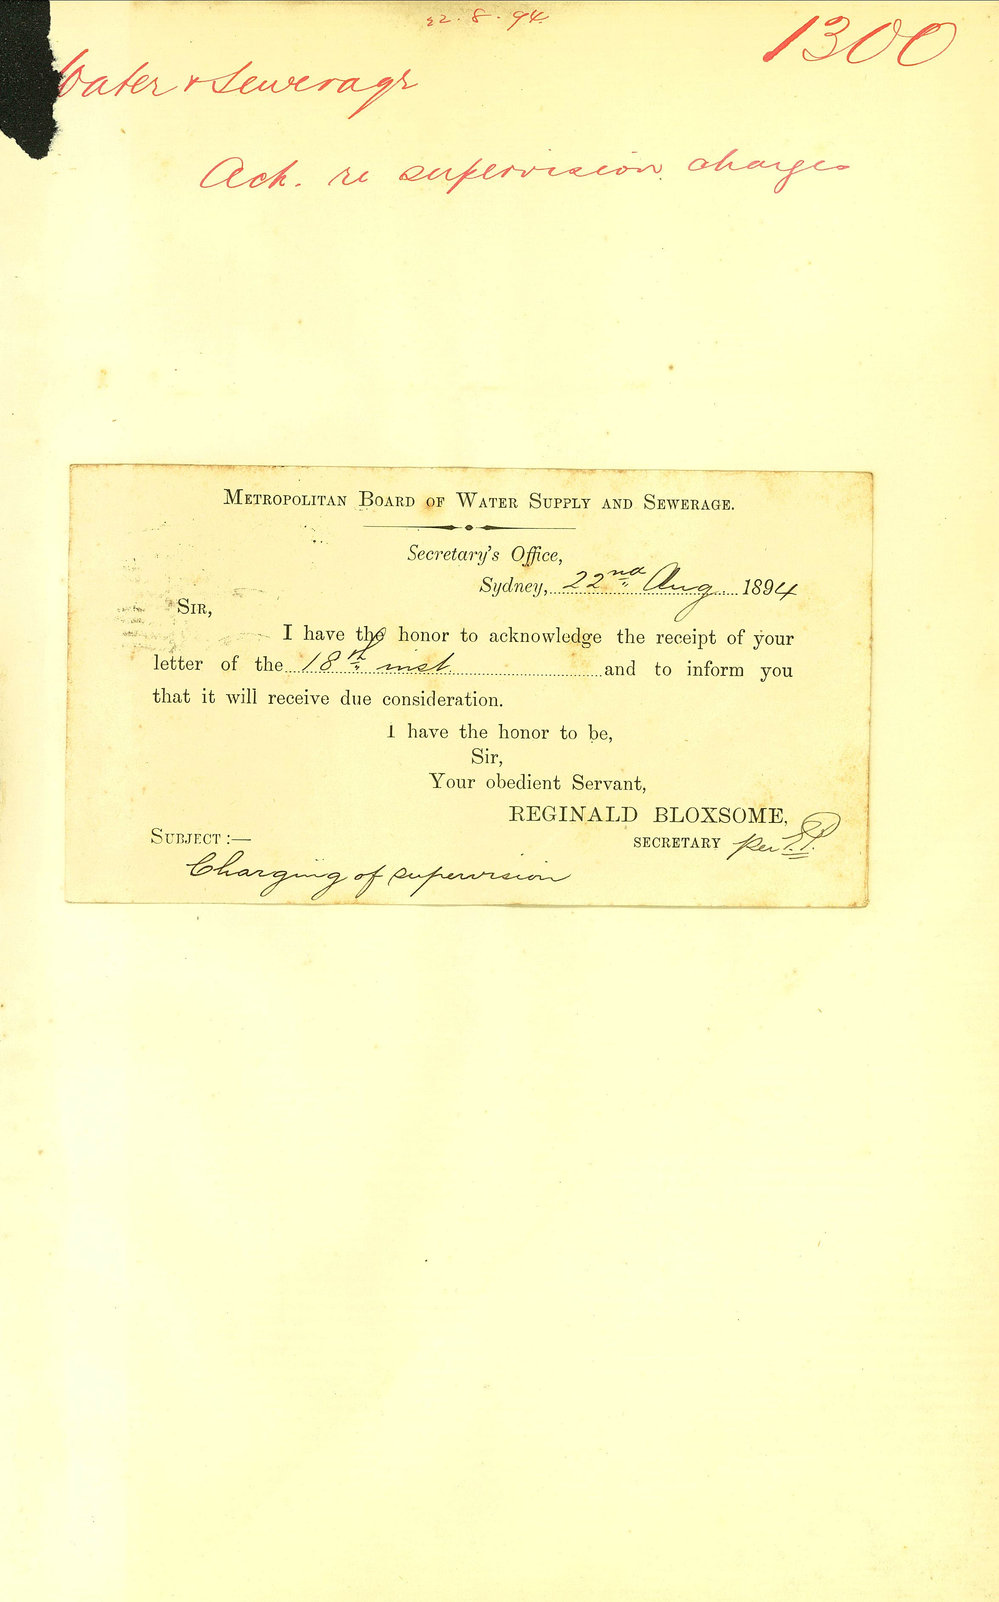 22.8.94.
1300
Water & Sewerage
Ack. re supervision charges
METROPOLITAN BOARD OF WATER SUPPLY AND SEWERAGE.
Secretary's Office,
Sydney, 22nd Aug. 1894
SIR,
I have the honor to acknowledge the receipt of your
letter of the 18th inst. and to inform you
that it will receive due consideration.
I have the honor to be,
Sir,
Your obedient Servant,
REGINALD BLOXSOME,
SECRETARY per
SUBJECT :—
Charging of supervision